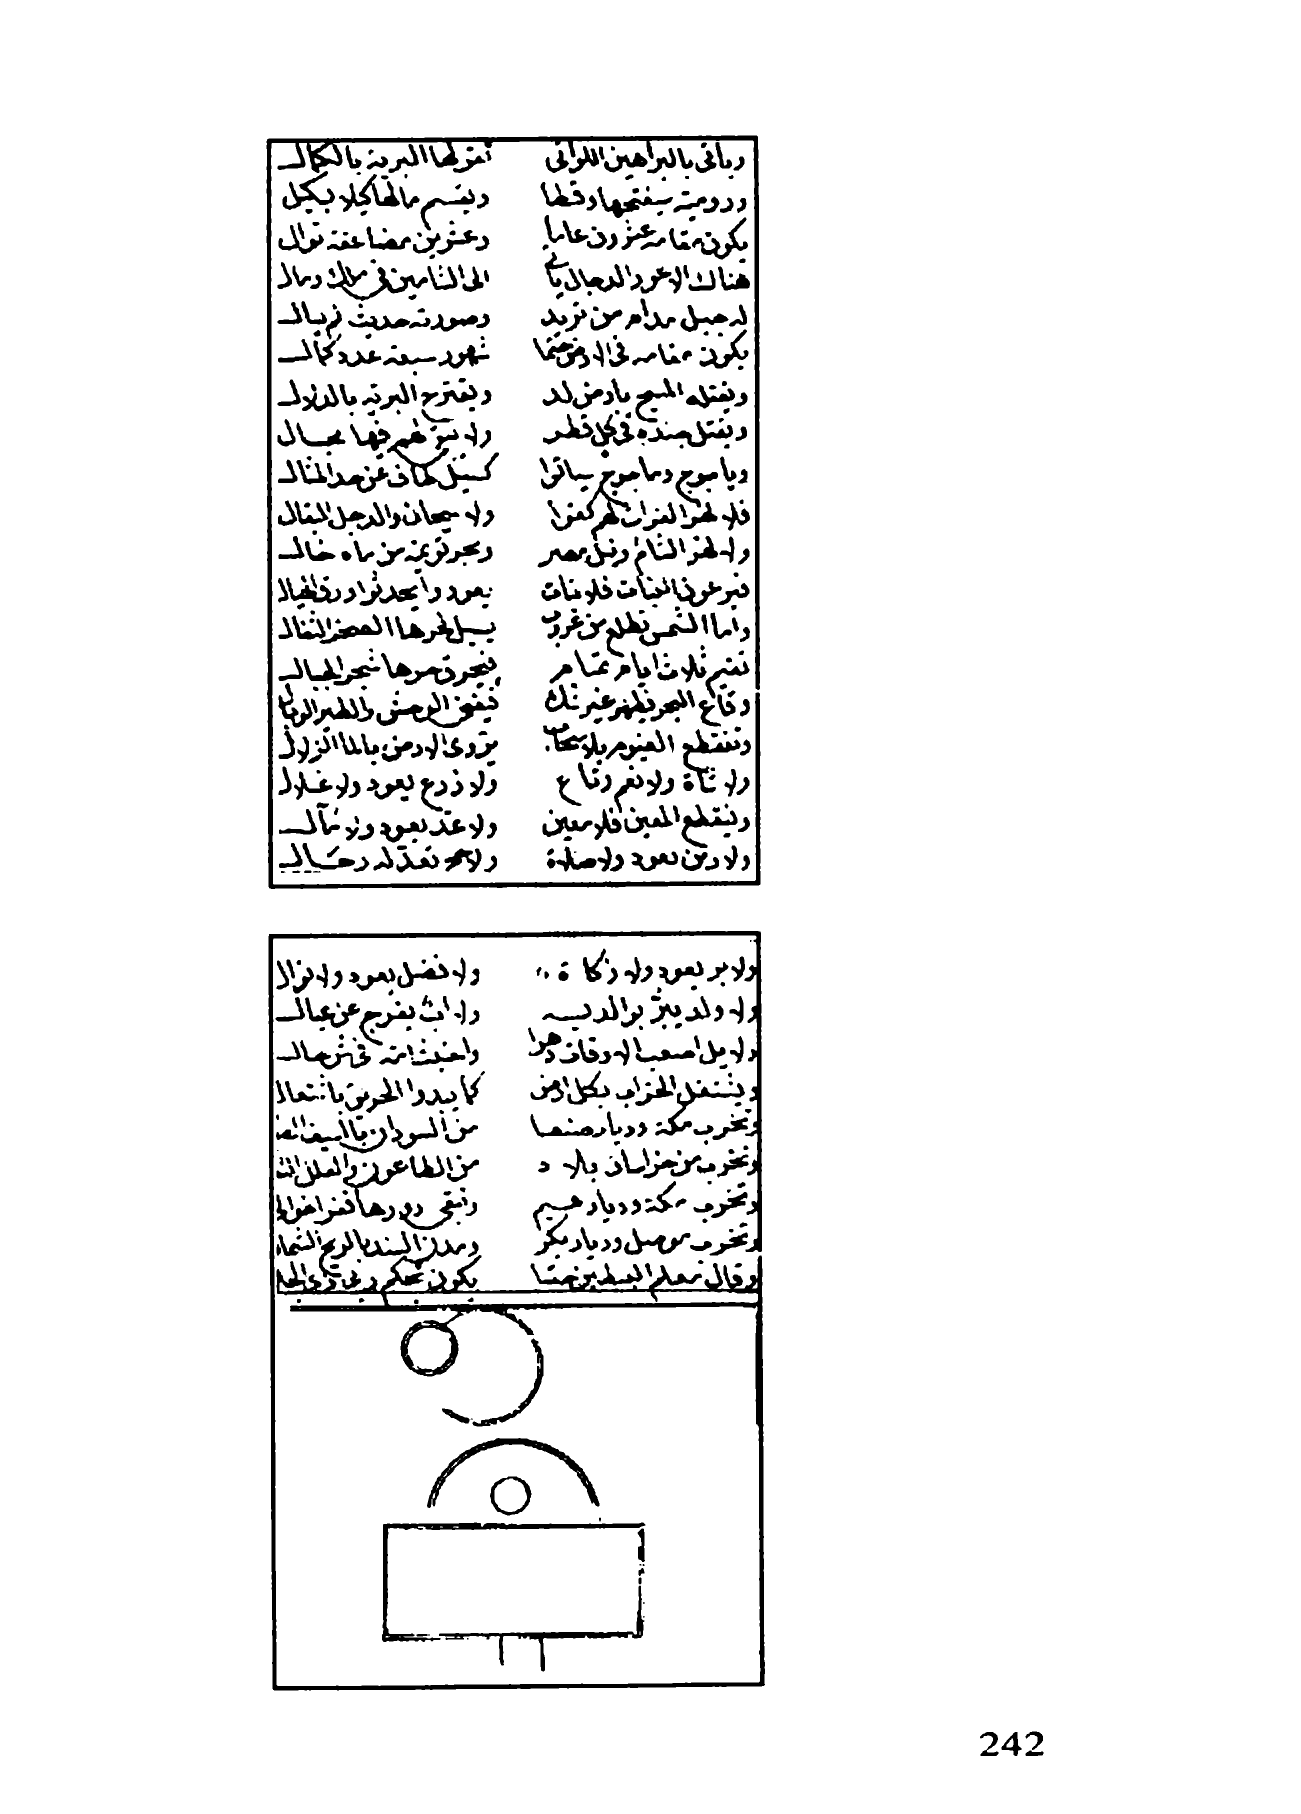 ويأتي بالبراهين اللواتي تقولها البرية بالكمال
ورومية سيفتحها وقطا ويقسم مالها كيلا بكيل
يكون مقامه عشرون عاما وعشرين مضاعفة توال
هناك الاعور الدجال يأتي الى الشامين في ملك ومال
له جبل مدام من تريد وصورته حديث
يكون مقامه في الارض حتما شهور سبعة عدد كمال
ويقتله المسيح بارض لد ويفترح البرية بالدلال
ويقتل جنده في كل قطر ولا يبق لهم فيها مجال
وياجوج وماجوج سياتوا كسيل طاف عن حد المثال
فلا نهر الفرات لهم كفوا ولا سيحان والدجل الثقال
ولا نهر الشام ونيل مصر وبحر من ماه خال
النبات فلا نبات يعود ولا ورق
واما الشمس تطلع من غروب يسيل لحرها الصخر الثقال
تقيم ثلاث ايام تمام فيحرق حرها شجر الجبال
وقاع البحر يظهر غير شك فيفنى الوحش والطير
وتنقطع الغيوم بلا سحاب تروى الارض بالماء الزلال
ولا شاة ولا نعم رتاع ولا زرع يعود ولا غلال
وينقطع المعين فلا معين ولا يعود ولا
ولا دين يعود ولا صلاة ولا تعد له رحال
ولا بر يعود ولا زكاة ولا فضل يعود ولا نوال
ولا ولد يبر بوالديه ولا اب يفرج عن عيال
اصعب الاوقات دهرا واخبث امة في شر حال
ويشتعل الخراب بكل ارض كما يبدوا الحريق باشتعال
وتخرب مكة وديار صنعا من السودان بالسيف
وتخرب من خراسان بلاد من الطاعون والعلل
وتخرب مكة وديار وتبقى دورها قفرا
وتخرب موصل وديار بكر ومدن السند بالريح الشما
وقال معلم السبطين حتما يكون بحكم ربي ذي الجلا
242